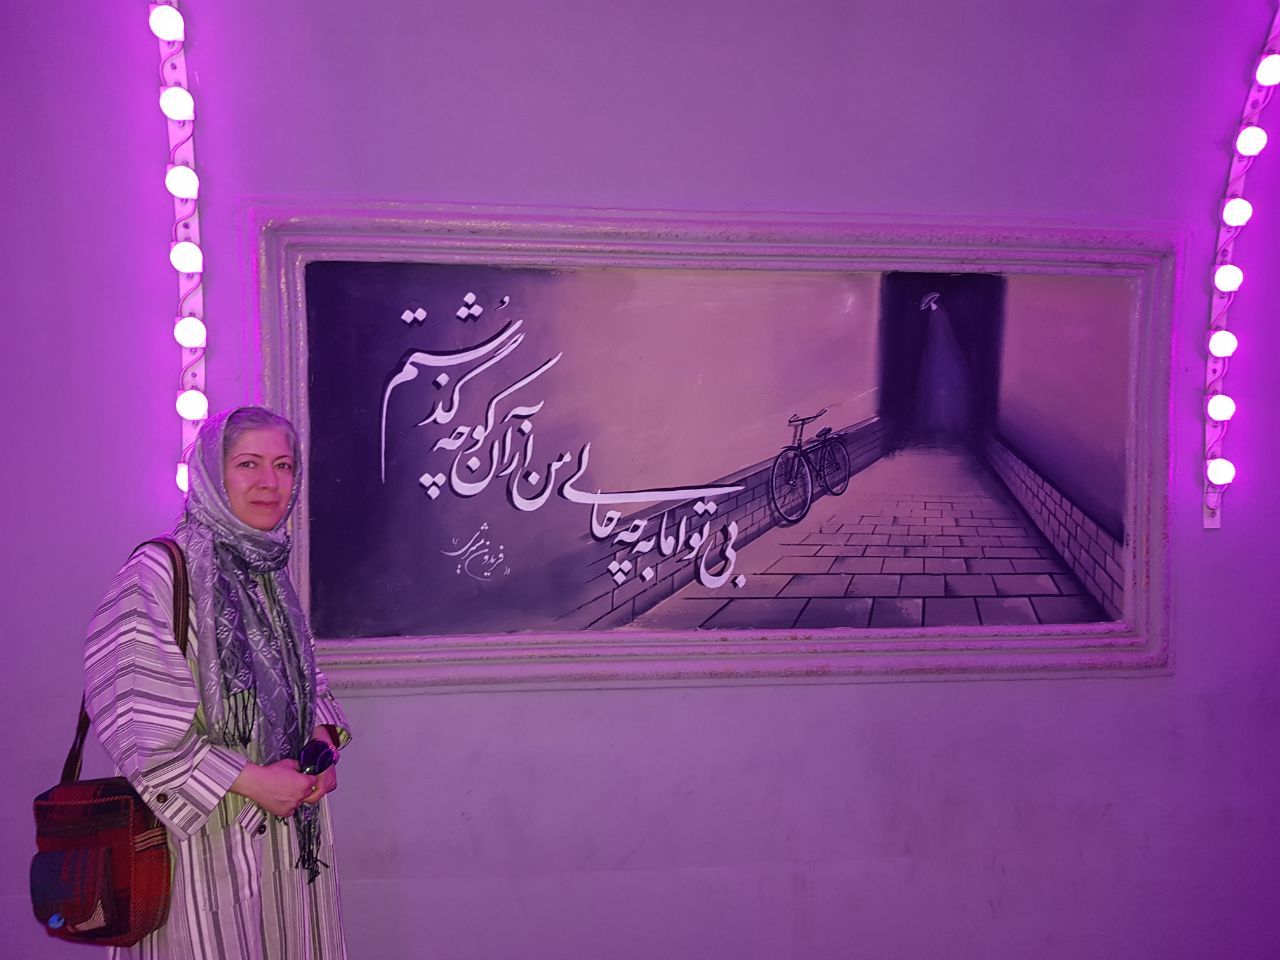 بی تو اما به چه حالی من از آن کوچه گذشتم
«فریدون مشیری»